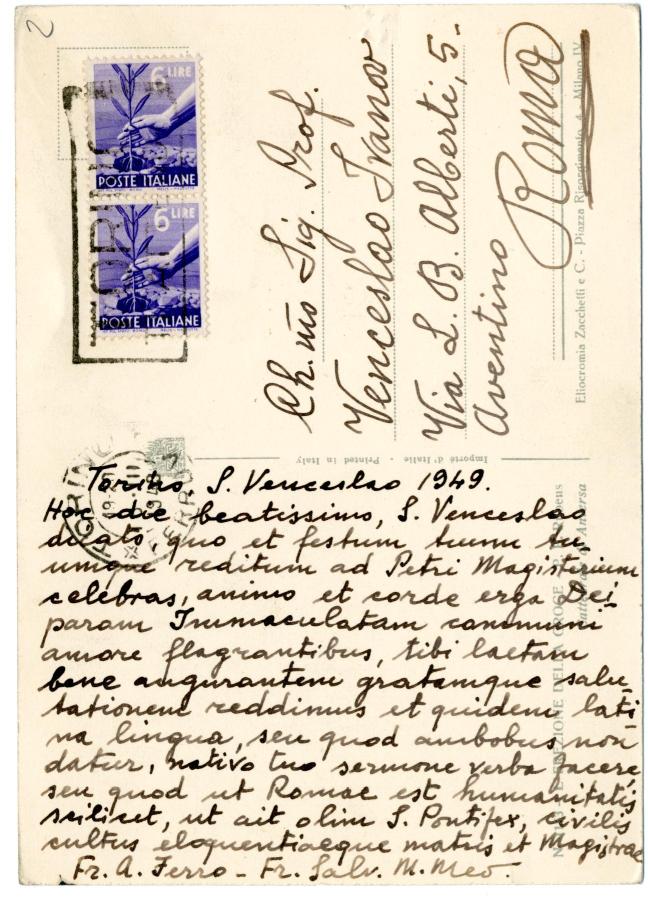 2
6 LIRE
POSTE ITALIANE
6 LIRE
POSTE ITALIANE
TORINO
Ch.mo Sig. Prof.
Venceslao Ivanov
Via L. B. Alberti, 5.
Aventino
Roma
Eliocromia Zacchetti e C. - Piazza Risorgimento 4 - Milano IV
Importé d'Italie - Printed in Italy
TORINO
FERRO
Torino, S. Venceslao 1949.
Hoc die beatissimo, S. Venceslao
dicato quo et festum tuum tu-
umque reditum ad Petri Magisterium
celebras, animo et corde erga Dei-
param Immaculatam communi
amore flagrantibus, tibi laetam
bene augurantem gratamque salu-
tationem reddimus et quidem lati-
na lingua, seu quod ambobus non
datur, nativo tuo sermone verba facere
seu quod ut Romae est humanitatis
scilicet, ut ait olim S. Pontifex, civilis
cultus eloquentiaeque matris et Magistrae
Fr. A. Ferro - Fr. Salv. M. Meo.
DELLA CROCE